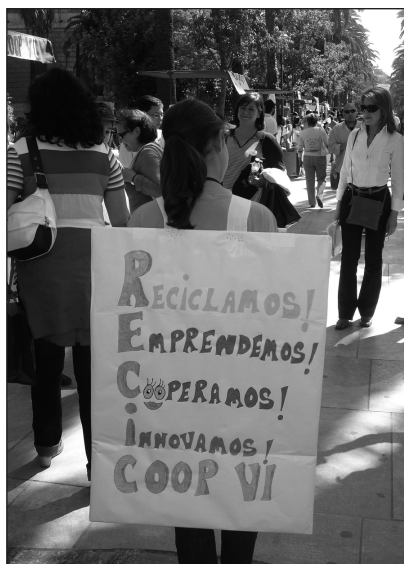 RECICLAMOS!
EMPRENDEMOS!
COOPERAMOS!
iNNOVAMOS!
COOP Vi